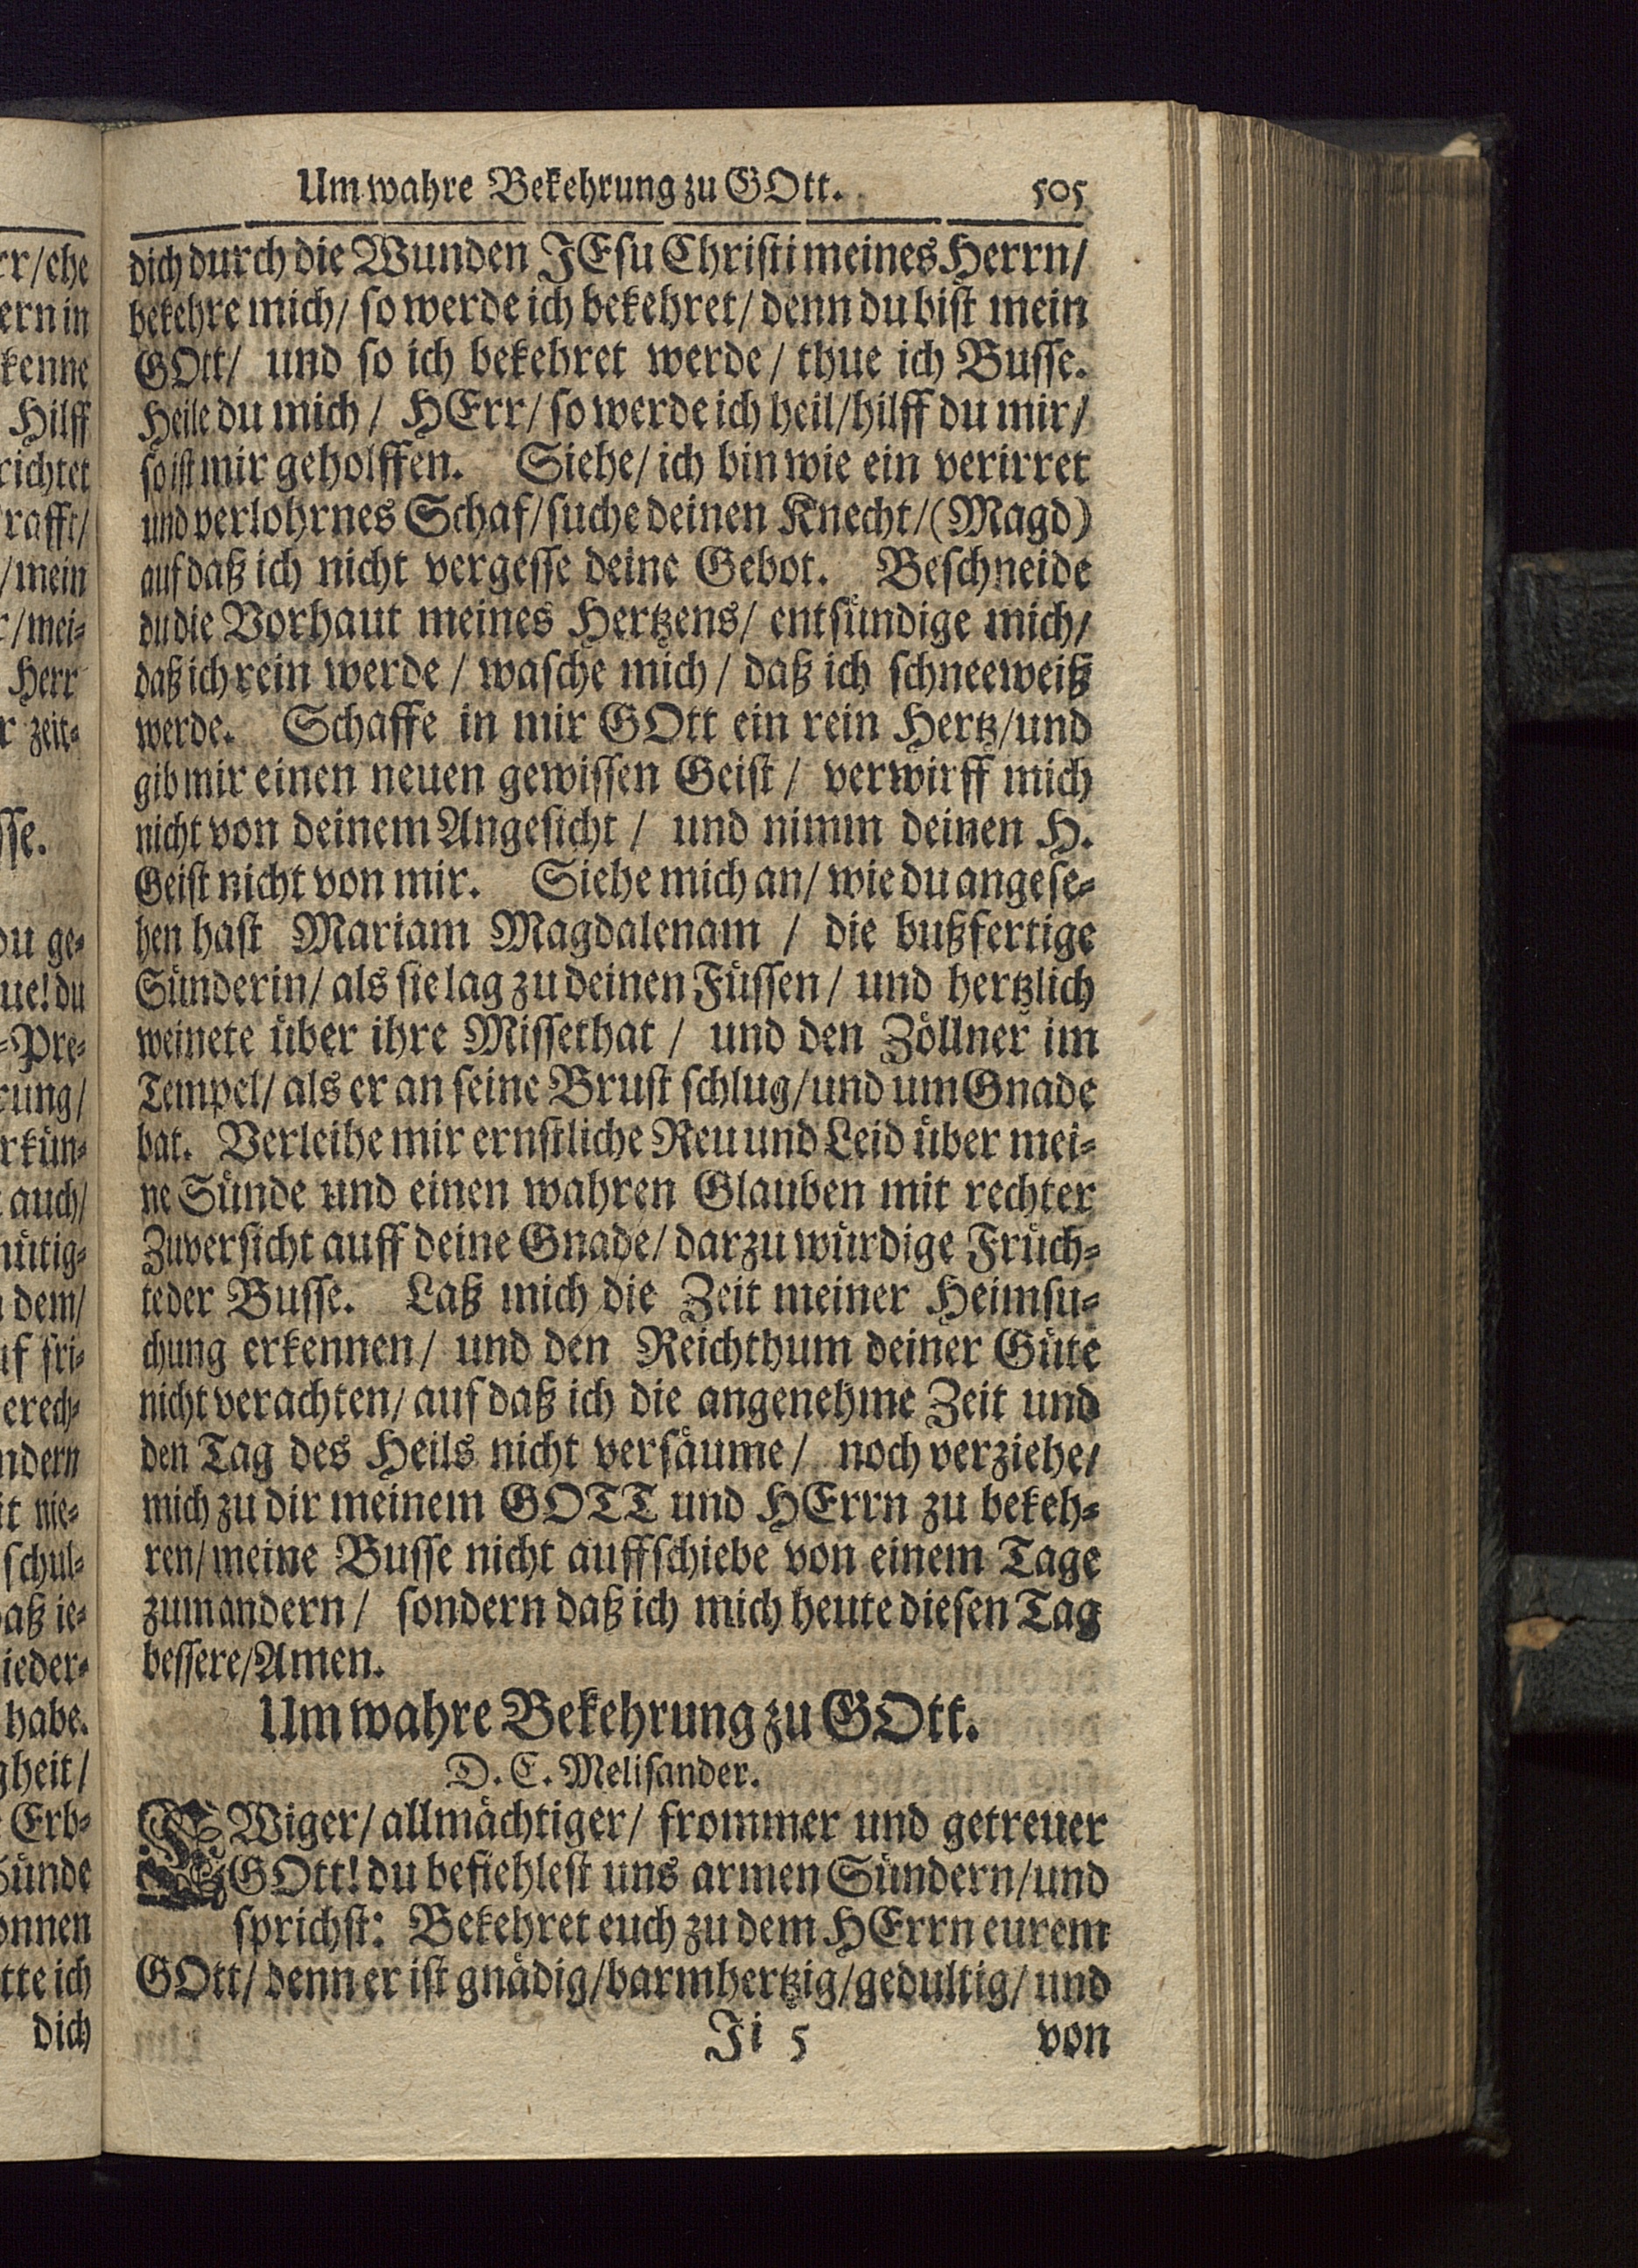 Um wahre Bekehrung zu GOtt. 505
dich durch die Wunden JEsu Christi meines Herrn/
bekehre mich/ so werde ich bekehret/ denn du bist mein
GOtt/ und so ich bekehret werde/ thue ich Busse.
Heile du mich/ HErr/ so werde ich heil/hilff du mir/
so ist mir geholffen. Siehe/ ich bin wie ein verirret
und verlohrnes Schaf/suche deinen Knecht/(Magd)
auf daß ich nicht vergesse deine Gebot. Beschneide
du die Vorhaut meines Hertzens/ entsündige mich/
daß ich rein werde/ wasche mich/ daß ich schneeweiß
werde. Schaffe in mir GOtt ein rein Hertz/und
gib mir einen neuen gewissen Geist/ verwirff mich
nicht von deinem Angesicht/ und nimm deinen H.
Geist nicht von mir. Siehe mich an/ wie du angese=
hen hast Mariam Magdalenam/ die bußfertige
Sünderin/ als sie lag zu deinen Füssen/ und hertzlich
weinete über ihre Missethat/ und den Zöllner im
Tempel/ als er an seine Brust schlug/und um Gnade
bat. Verleihe mir ernstliche Reu und Leid über mei=
ne Sünde und einen wahren Glauben mit rechter
Zuversicht auff deine Gnade/ darzu würdige Früch=
te der Busse. Laß mich die Zeit meiner Heimsu=
chung erkennen/ und den Reichthum deiner Güte
nicht verachten/ auf daß ich die angenehme Zeit und
den Tag des Heils nicht versäume/ noch verziehe/
mich zu dir meinem GOTT und HErrn zu bekeh=
ren/ meine Busse nicht auffschiebe von einem Tage
zum andern/ sondern daß ich mich heute diesen Tag
bessere/Amen.
Um wahre Bekehrung zu GOtt.
D. C. Melisander.
EWiger/ allmächtiger/ frommer und getreuer
GOtt! du befiehlest uns armen Sündern/und
sprichst: Bekehret euch zu dem HErrn eurem
GOtt/ denn er ist gnädig/barmhertzig/gedultig/ und
Ji 5 von